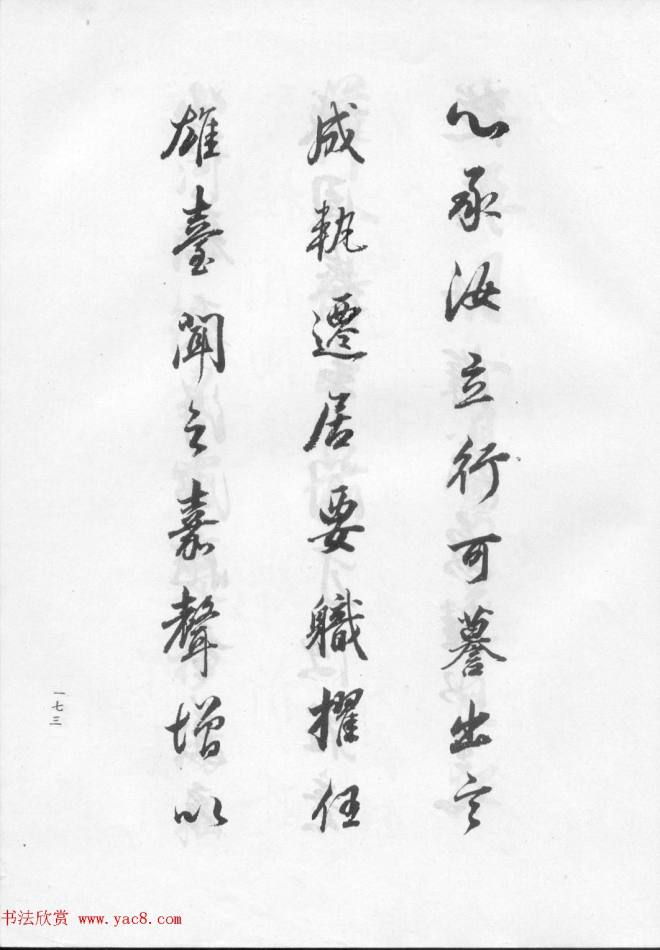 心承汝立行可謩出言
成軌遷居要職擢任
雄臺聞之嘉聲增以
一七三
书法欣赏 www.yac8.com